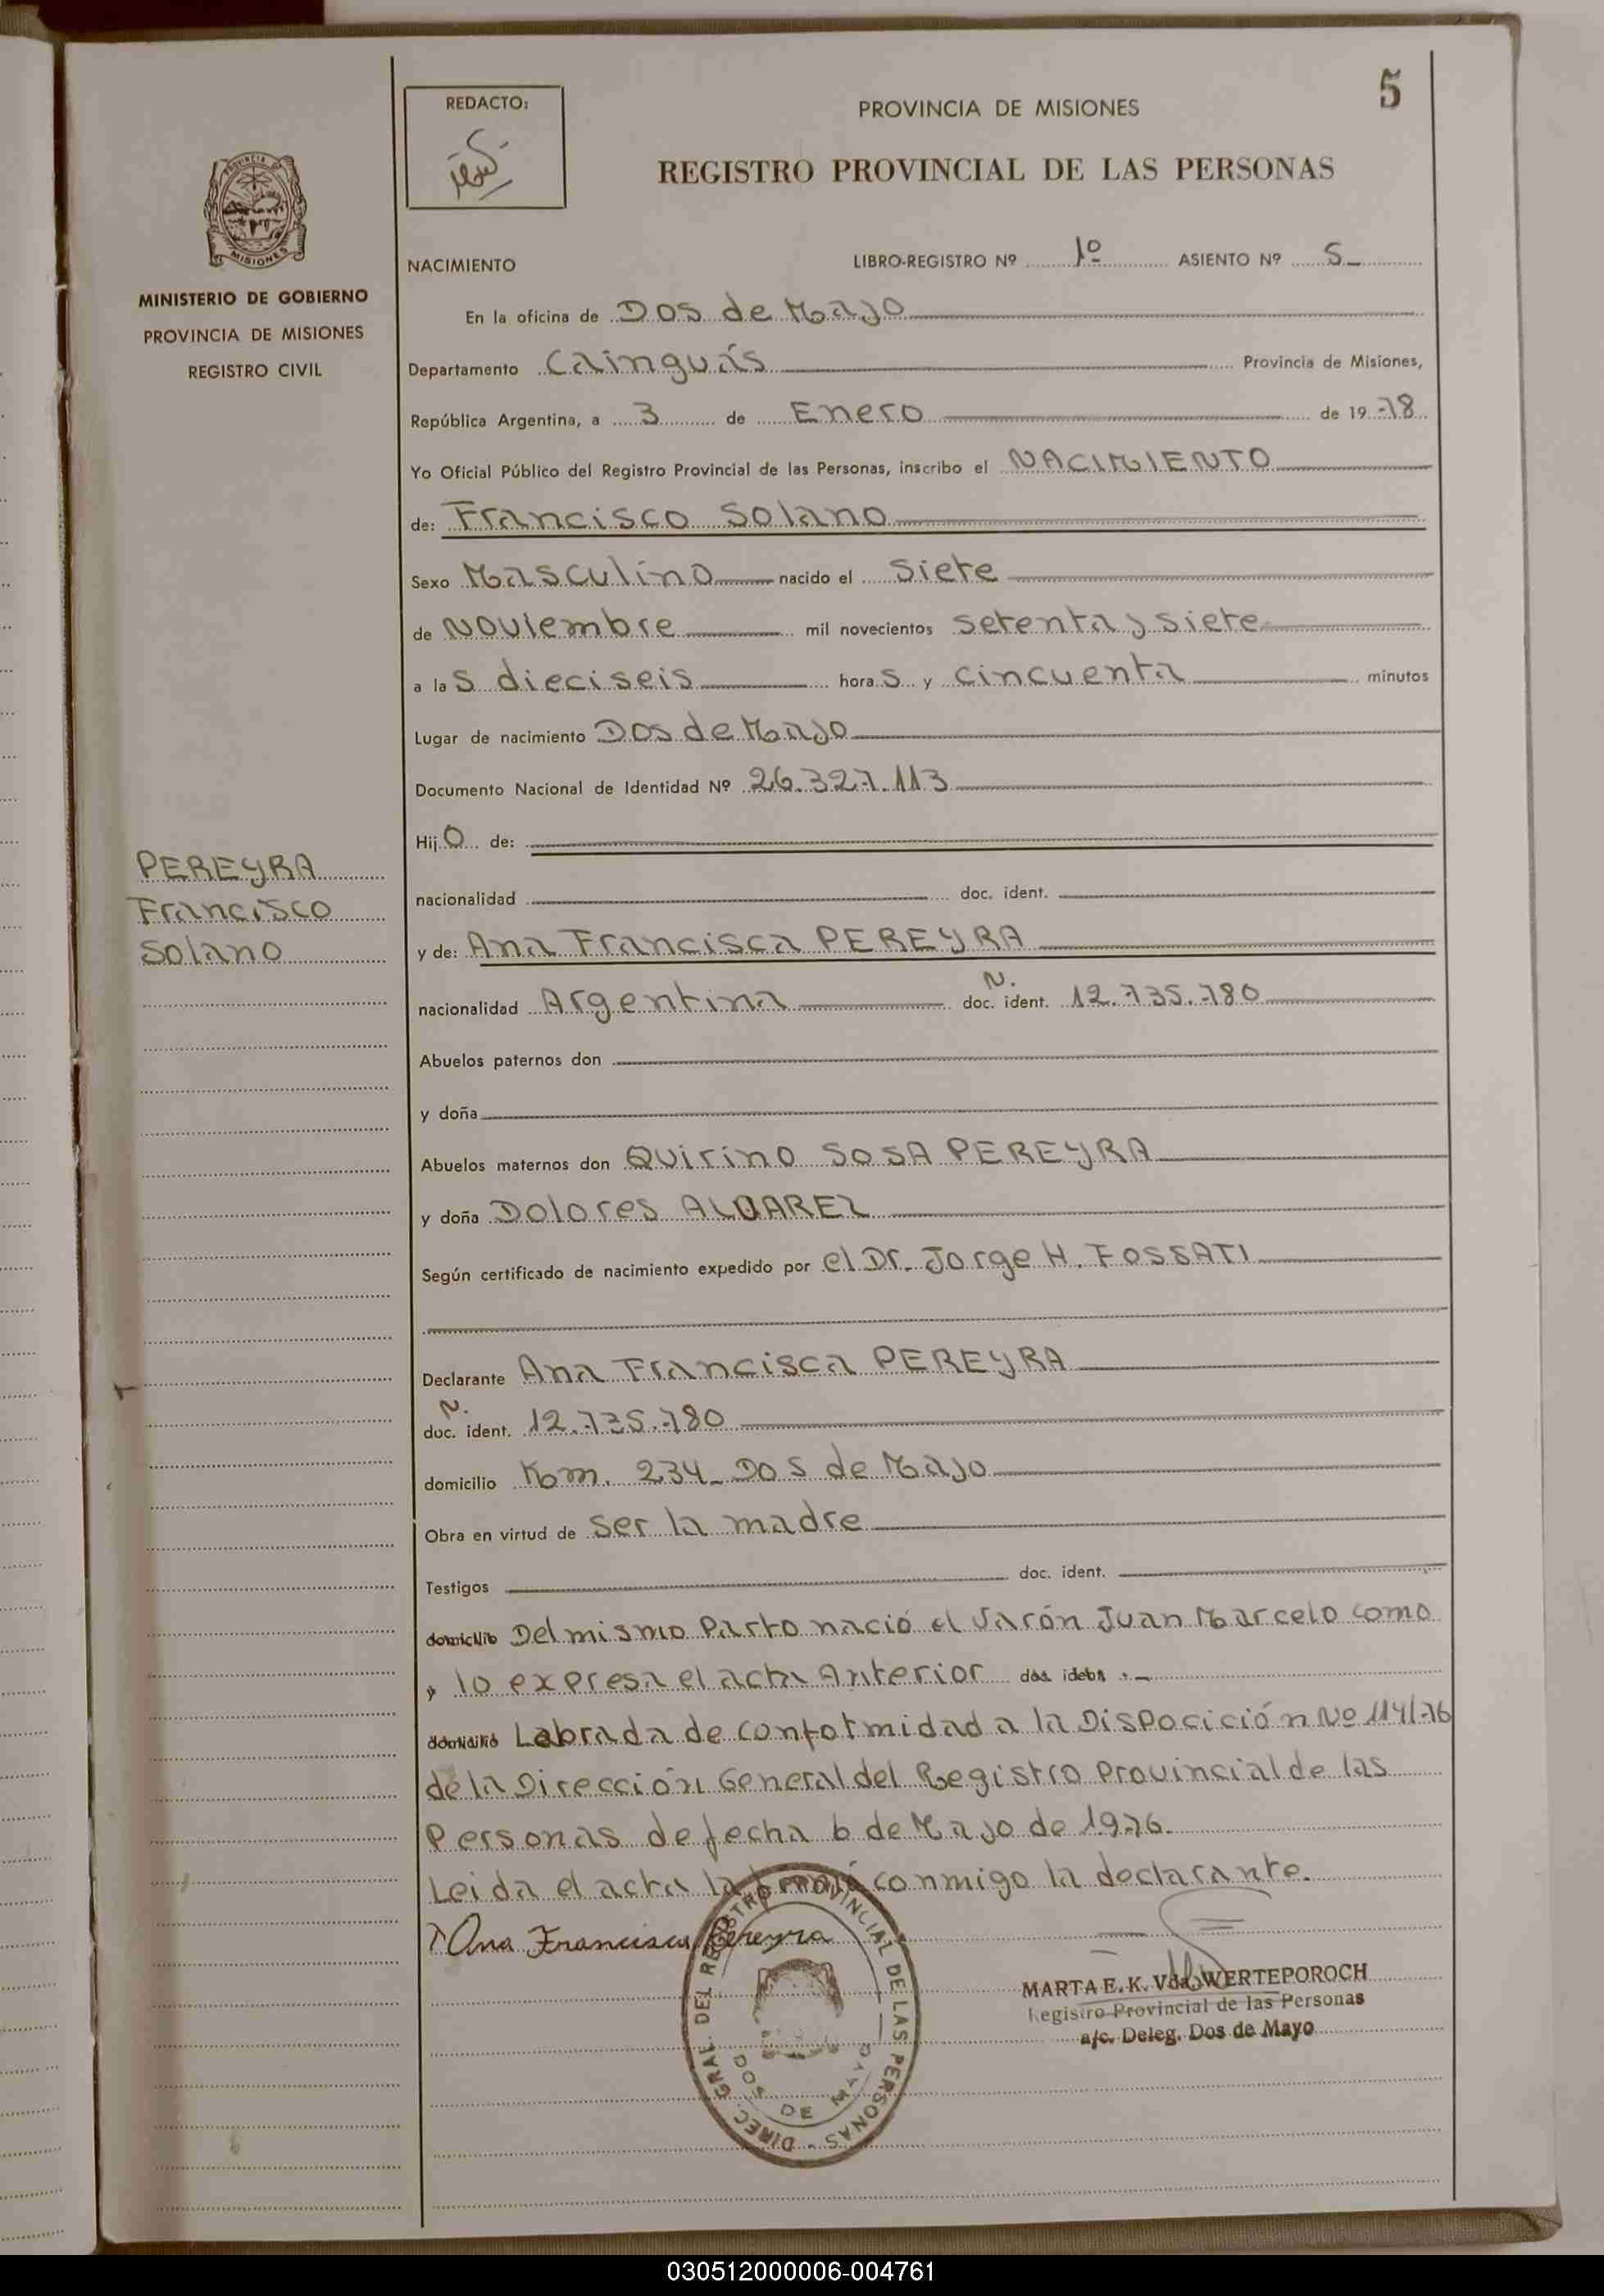 5
REDACTO:
PROVINCIA DE MISIONES
REGISTRO PROVINCIAL DE LAS PERSONAS
PROVINCIA DE
MISIONES
MINISTERIO DE GOBIERNO
PROVINCIA DE MISIONES
REGISTRO CIVIL
NACIMIENTO LIBRO-REGISTRO Nº 1º ASIENTO Nº 5_
En la oficina de Dos de Mayo
Departamento Cainguás Provincia de Misiones,
República Argentina, a 3 de Enero de 19 78
Yo Oficial Público del Registro Provincial de las Personas, inscribo el NACIMIENTO
de: Francisco Solano
Sexo Masculino nacido el siete
de Noviembre mil novecientos setenta y siete
a las dieciseis horas y cincuenta minutos
Lugar de nacimiento Dos de Mayo
Documento Nacional de Identidad Nº 26.327.113
Hijo de:
PEREYRA
Francisco
Solano
nacionalidad doc. ident.
y de: Ana Francisca PEREYRA
nacionalidad Argentina N. doc. ident. 12.735.780
Abuelos paternos don
y doña
Abuelos maternos don Quirino SOSA PEREYRA
y doña Dolores ALVAREZ
Según certificado de nacimiento expedido por el Dr. Jorge H. FOSSATI
Declarante Ana Francisca PEREYRA
N.
doc. ident. 12.735.780
domicilio Km. 234_ Dos de Mayo
Obra en virtud de ser la madre
Testigos doc. ident.
domicilio Del mismo Parto nació el Varón Juan Marcelo como
y lo expresa el acta Anterior doc. ident. ._
domicilio Labrada de conformidad a la Disposición Nº 114/76
de la Dirección General del Registro Provincial de las
Personas de fecha 6 de Mayo de 1976.
Leida el acta la firmó conmigo la declarante.
Ana Francisca Pereyra
DIREC. GRAL. DEL REGISTRO PROVINCIAL DE LAS PERSONAS -
DOS DE MAYO
MARTA E. K. Vda. WERTEPOROCH
Registro Provincial de las Personas
a/c. Deleg. Dos de Mayo
030512000006-004761